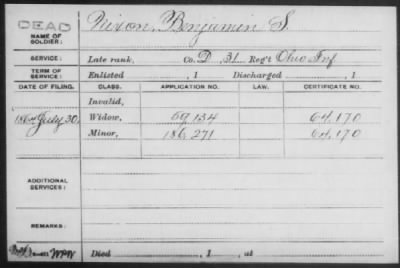 DEAD
NAME OF SOLDIER: Nixon, Benjamin S.
SERVICE: Late rank, Co. D, 31 Reg't Ohio Inf
TERM OF SERVICE: Enlisted , 1 Discharged , 1
DATE OF FILING. CLASS. APPLICATION NO. LAW. CERTIFICATE NO.
Invalid,
1864 July 30 Widow, 59,134 64,170
Minor, 186,271 64,170
ADDITIONAL SERVICES:
REMARKS:
Died , 1 , at